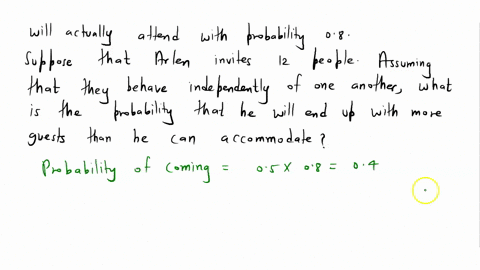 will actually attend with probability 0.8.
Suppose that Arlen invites 12 people. Assuming
that they behave independently of one another, what
is the probability that he will end up with more
guests than he can accommodate?
Probability of coming = 0.5 x 0.8 = 0.4